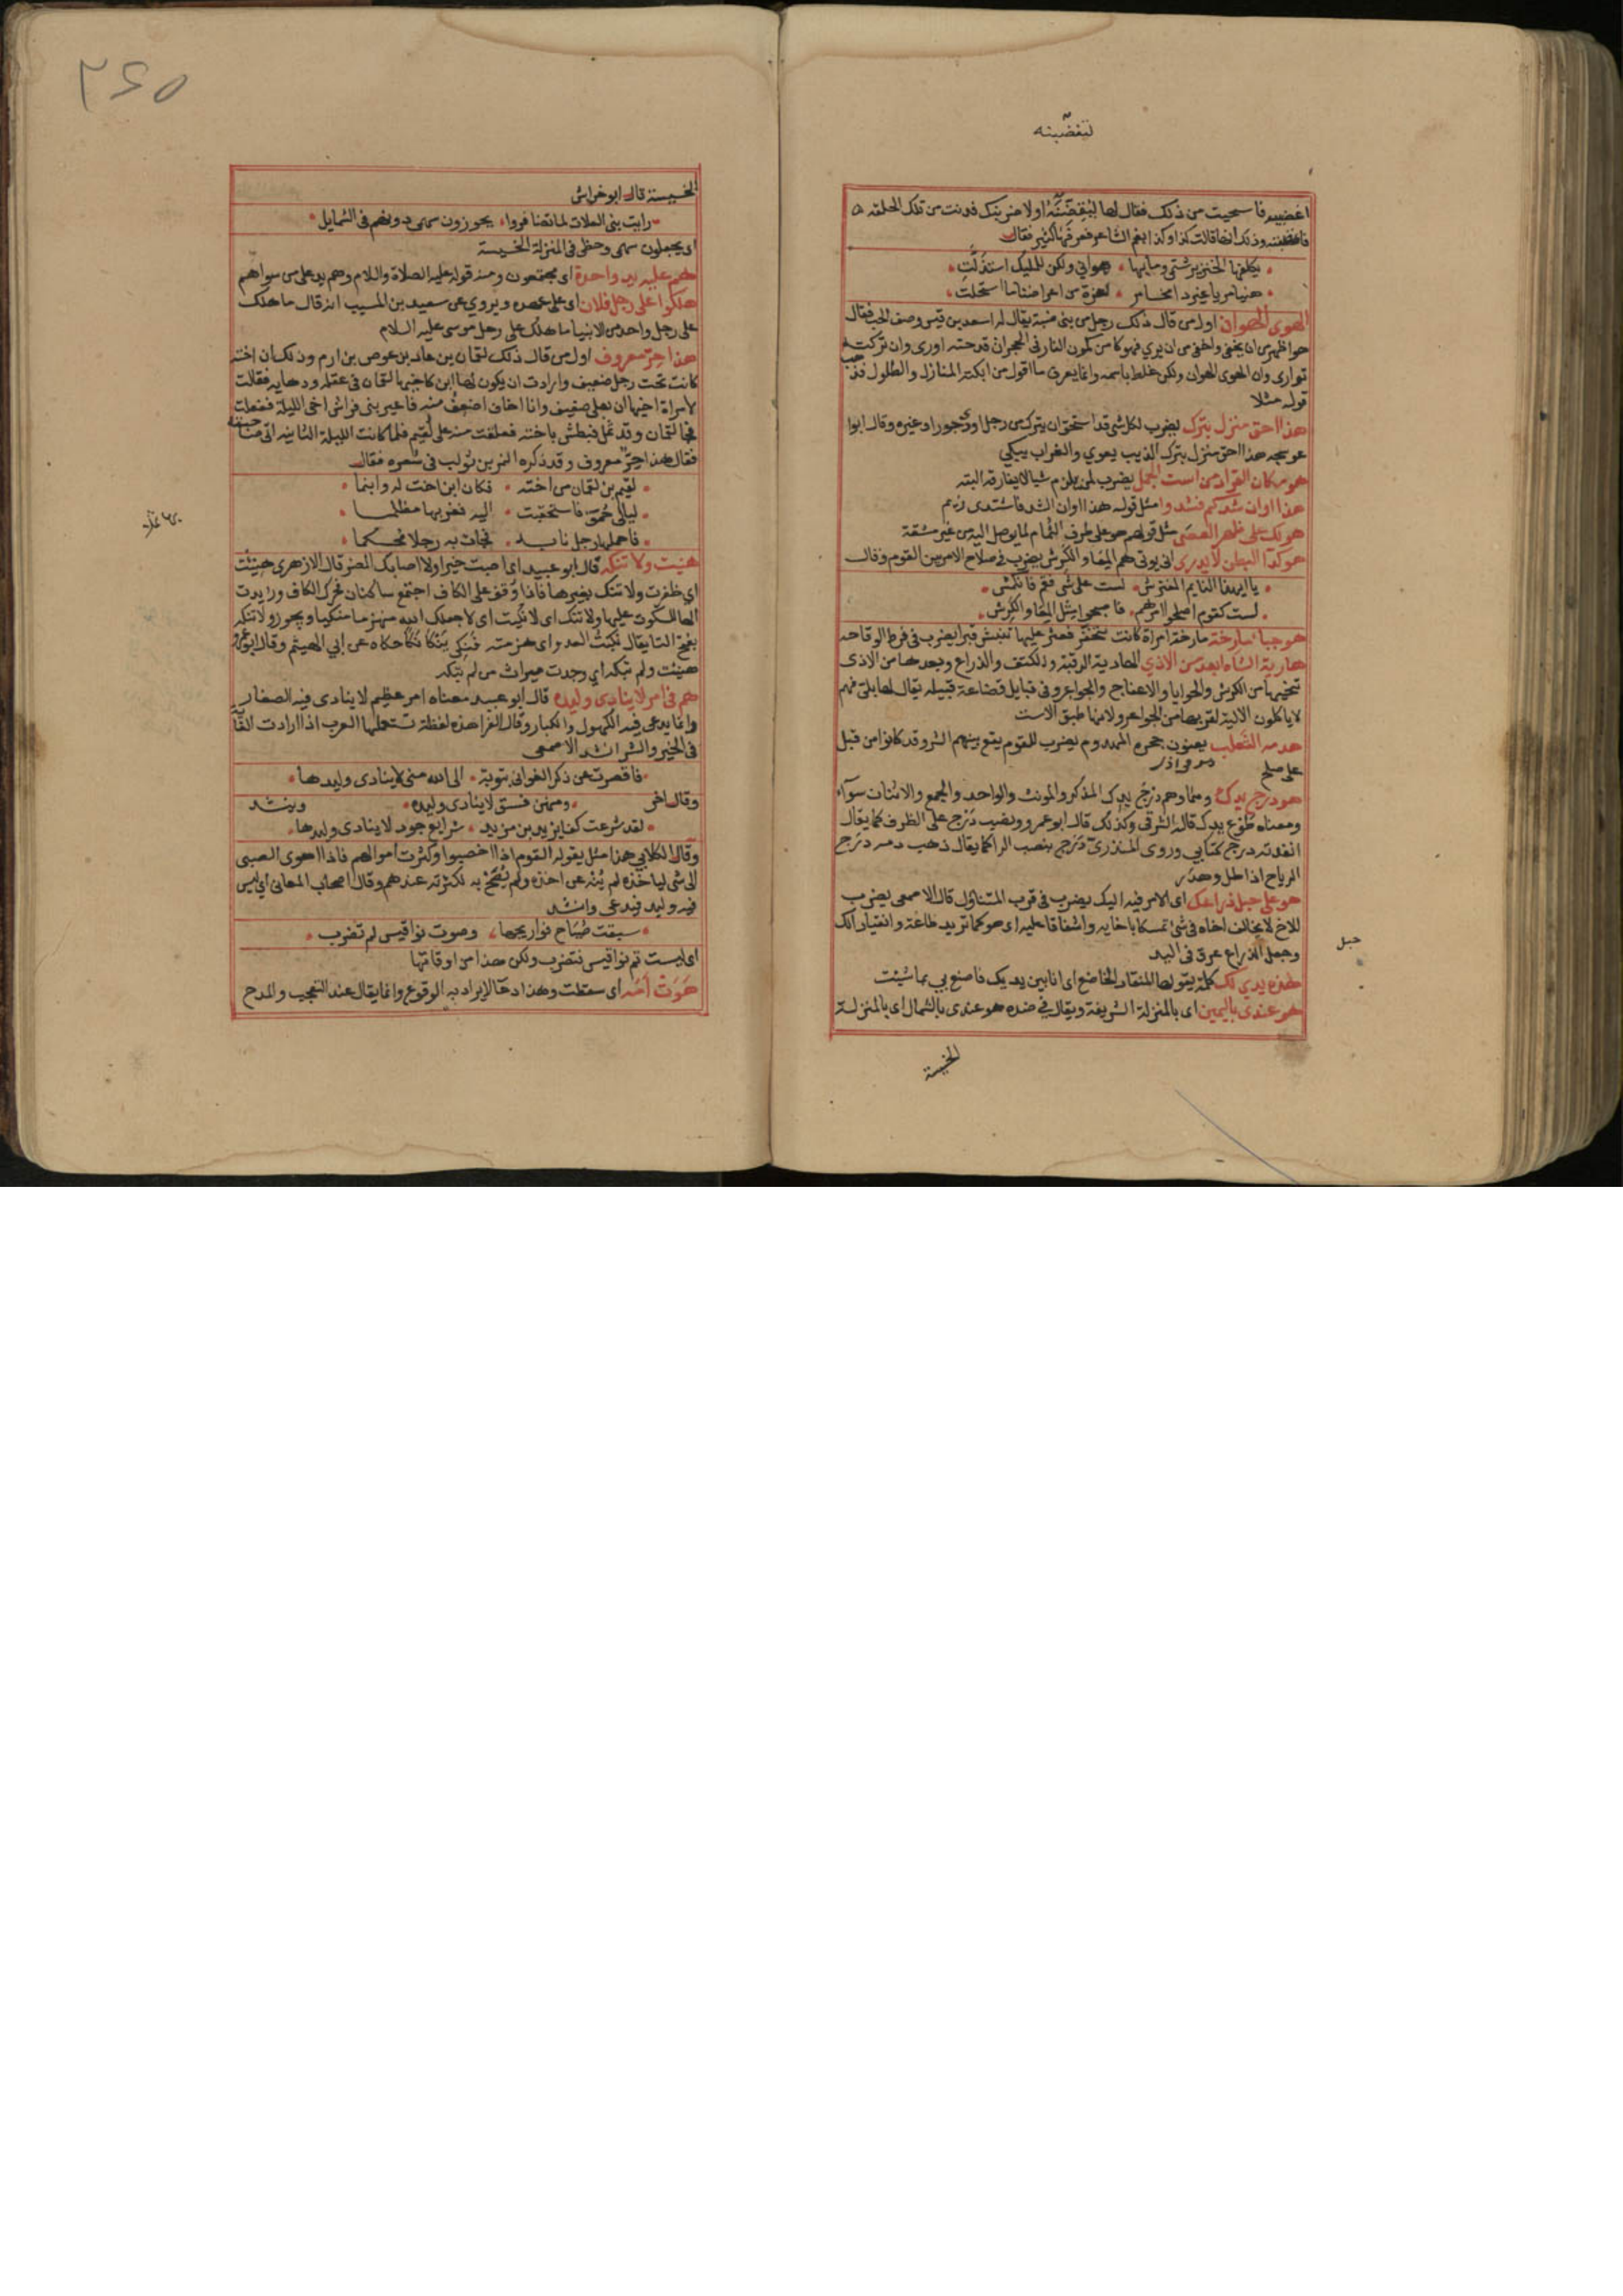 لتغضبنه
اغضبيه فاستحيت من ذلك فقال لها لتغضبنه او لاضربنك فدنت من تلك الحلقه
فاغضبته وذلك انها قالت كذا وكذا بفم الشاعر فعرفها كثير فقال
يكلفها الخنزير شتمى وما بها هوانى ولكن للمليك استذلت
هنيا مريا غير داء مخامر لعزة من اعراضنا ما استحلت
الهوى الهوان اول من قال ذلك رجل من بنى ضبة يقال له اسعد بن قيس وصف الحب فقال
هو اظهر من ان يخفى واخفى من ان يرى فهو كامن كمون النار فى الحجر ان قدحته اورى وان تركته
توارى وان الهوى الهوان ولكن غلط باسمه وانما يعرف ما اقول من ابكته المنازل والطلول فذهب
قوله مثلا
هذا احق منزل بترك يضرب لكل شى قد استحق ان يترك من رجل او جوار او غيره وقال ابوا
عوسجه هذا احق منزل بترك الذيب يعوى والغراب يبكى
هو مكان القراد من است الجمل يضرب لمن يلزم شيا لا يفارقه البته
هذا اوان شدكم فشدوا مثل قوله هذا اوان الشد فاشتدى زيم
هو لك على ظهر العصى مثل قولهم هو على طرف الثمام لما يوصل اليه من غير مشقة
هو كدا البطن لا يدرى انى يوتى هم المعا والكرش يضرب فى صلاح الامر بين القوم وقال
يا ايهذا النايم المفترش لست على شى فقم فانكمش
لست كقوم اصلحوا امرهم فاصبحوا مثل المعا والكرش
هو جباء مارخة مارخة امراة كانت تتخفر فعثر عليها تنبش قبرا يضرب فى فرط الوقاحه
هادية الشاه ابعد من الاذى الهادية الرقبة والكتف والذراع وبعدها من الاذى
تنحيها من الكرش والحوايا والاعفاج والجواعر وفى قبايل قضاعة قبيلة يقال لها بلى فهم
لا ياكلون الالية لقربها من الجواعر ولانها طبق الاست
هدمه الثعلب يعنون جحره المهدوم يضرب للقوم يقع بينهم الشر وقد كانوا من قبل
على صلح
هو درج يدك وهما وهم درج يدك المذكر والمونث والواحد والجمع والاثنان سوآء
ومعناه طوع يدك قاله الشرقى وكذلك قال ابو عمرو ونصب درج على الظرف كما يقال
انفدته درج كتابى وروى المنذرى درج بنصب الرا كما يقال ذهب دمه درج
الرياح اذا طل وهدر
هو على حبل ذراعك اى الامر فيه اليك يضرب فى قرب المتناول قال الاصمعى يضرب
للاخ لا يخالف اخاه فى شى تمسكا باخايه واشفاقا عليه اى هو كما تريد طاعة وانقيادا لك
وحبل الذراع عرق فى اليد
حبل
هذه يدى لك كلمة يقولها المنقاد الخاضع اى انا بين يديك فاصنع بى ما شيئت
هو عندى باليمين اى بالمنزلة الشريفة ويقال فى ضده هو عندى بالشمال اى بالمنزلة
الخسيسة
٣٤٥
الخسيسة قال ابو خراش
رايت بنى العلات لما تضافروا يحوزون سهمى دونهم فى الشمايل
اى يجعلون سهمى وحظى فى المنزلة الخسيسة
هم عليه يد واحدة اى مجتمعون ومنه قوله عليه الصلاة والسلام وهم يد على من سواهم
هلكوا على رجل فلان اى على عهده ويروى عن سعيد بن المسيب انه قال ما هلك
على رجل واحد من الانبيا ما هلك على رجل موسى عليه السلام
هذا حر معروف اول من قال ذلك لقمان بن عاد بن عوص بن ارم وذلك ان اخته
كانت تحت رجل ضعيف وارادت ان يكون لها ابن كاخيها لقمان فى عقله ودهايه فقالت
لامراة اخيها ان بعلى ضعيف وانا اخاف اضعف منه فاعيرينى فراش اخى الليلة ففعلت
فجا لقمان وقد ثمل فبطش باخته فعلقت منه على لقيم فلما كانت الليلة الثانيه اتى صاحبته
فقال هذا حر معروف وقد ذكره النمر بن تولب فى شعره فقال
لقيم بن لقمان من اخته فكان ابن اخت له وابنما
ليالى حمق فاستحقبت اليه فغر بها مظلما
فاحبلها رجل نابه فجات به رجلا محكما
هنيت ولا تنكه قال ابو عبيد اى اصبت خيرا ولا اصابك الضر قال الازهرى هنيئت
اى ظفرت ولا تنك بغير ها فاذا وقف على الكاف اجتمع ساكنان فحرك الكاف وزايدت
الها للسكوت عليها ولا تنك اى لا نكيت اى لا جعلك الله منهزما منكيا ويجوز ولا تنكه
بفتح التا يقال نكيت العدو اى هزمته فنكى ينكا نكا حكاه عن ابى الهيثم وقال ابو عمرو
هنيئت ولم تنكه اى وجدت ميراث من لم تنكه
هم فى امر لا ينادى وليده قال ابو عبيد معناه امر عظيم لا ينادى فيه الصغار
وانما يدعى فيه الكهول والكبار وقال الفرا هذه لفظة تستعملها العرب اذا ارادت الغاية
فى الخير والشر انشد الاصمعى
فاقصرت عن ذكر الغوانى بتوبة الى الله منى لا ينادى وليدها
وقال اخر ومنهن فسق لا ينادى وليده وينشد
لقد شرعت كفا يزيد بن مزيد شرايع جود لا ينادى وليدها
وقال الكلابى هذا مثل يقوله القوم اذا اخصبوا وكثرت اموالهم فاذا اهوى الصبى
الى شى لياخذه لم ينه عن اخذه ولم يصح به لكثرته عندهم وقال اصحاب المعانى اى ليس
فيه وليد فيدعى وانشد
سبقت صياح فراريجها وصوت نواقيس لم تضرب
اى ليست ثم نواقيس فتضرب ولكن هذا من اوقاتها
هوت امه اى سقطت وهذا دعا لا يراد به الوقوع وانما يقال عند التعجب والمدح